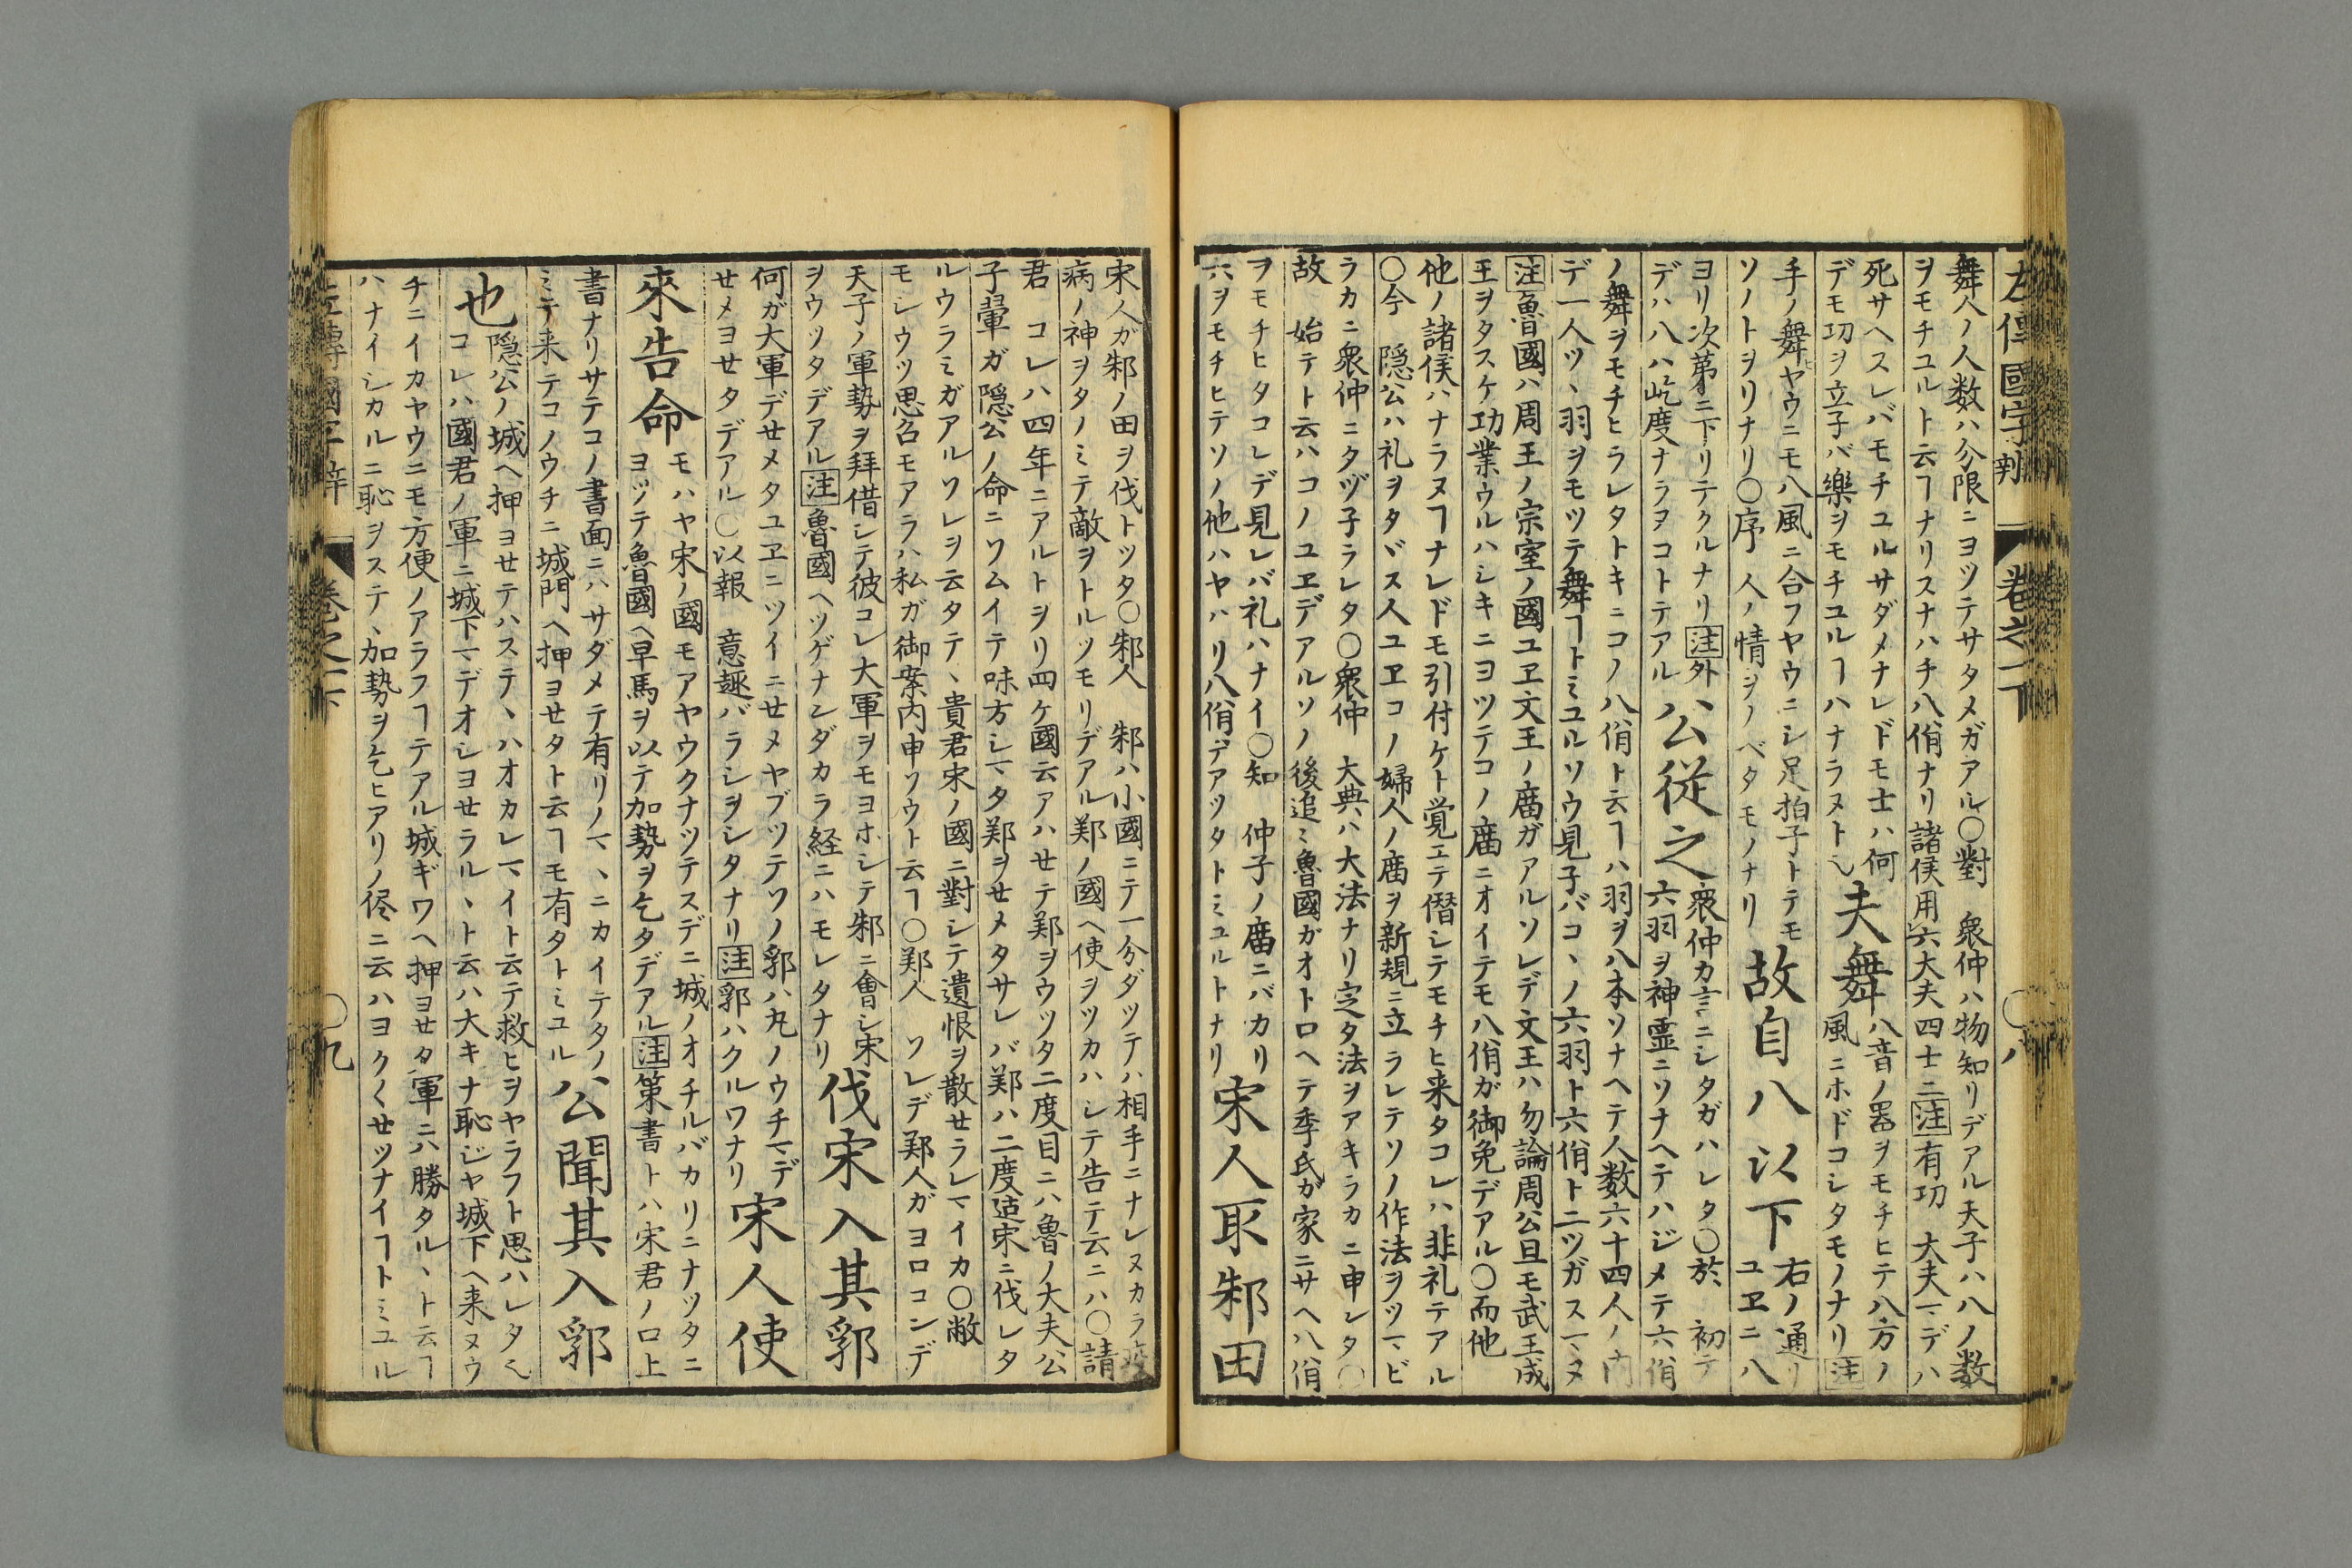 左傳國字辨 巻之一下 〇八
舞人ノ人数ハ分限ニヨツテサタメガアル〇對 衆仲ハ物知リデアル天子ハ八ノ数
ヲモチユルト云ヿナリスナハチ八佾ナリ諸侯用六大夫四士二注有功 大夫マデハ
死サヘスレバモチユルサダメナレドモ士ハ何
デモ功ヲ立子バ樂ヲモチユルヿハナラヌト也
夫舞
八音ノ器ヲモチヒテ八方ノ
風ニホドコシタモノナリ注
手ノ舞ヤウニモ八風ニ合フヤウニシ足拍子トテモ
ソノトヲリナリ〇序 人ノ情ヲノベタモノナリ
故自八以下
右ノ通リ
ユヱニ八
ヨリ次第ニ下リテクルナリ注外
デハ八ハ屹度ナラヌコトテアル
公従之
衆仲カ言ニシタガハレタ〇於 初テ
六羽ヲ神霊ニソナヘテハジメテ六佾
ノ舞ヲモチヒラレタトキニコノ八佾ト云ヿハ羽ヲ八本ソナヘテ人数六十四人ノ内
デ一人ツヽ羽ヲモツテ舞ヿトミユルソウ見子バコヽノ六羽ト六佾トニツガスマヌ
注魯國ハ周王ノ宗室ノ國ユヱ文王ノ廟ガアルソレデ文王ハ勿論周公旦モ武王成
王ヲタスケ功業ウルハシキニヨツテコノ廟ニオイテモ八佾ガ御免デアル〇而他
他ノ諸侯ハナラヌヿナレドモ引付ケト覚エテ僭シテモチヒ来タコレハ非礼テアル
〇今 隠公ハ礼ヲタヾス人ユヱコノ婦人ノ廟ヲ新規ニ立ラレテソノ作法ヲツマビ
ラカニ衆仲ニタヅ子ラレタ〇衆仲 大典ハ大法ナリ定タ法ヲアキラカニ申シタ〇
故 始テト云ハコノユヱデアルソノ後追ミ魯國ガオトロヘテ季氏ガ家ニサヘ八佾
ヲモチヒタコレデ見レバ礼ハナイ〇知 仲子ノ廟ニバカリ
六ヲモチヒテソノ他ハヤハリ八佾デアツタトミユルトナリ
宋人取邾田
宋人ガ邾ノ田ヲ伐トツタ〇邾人 邾ハ小國ニテ一分ダツテハ相手ニナレヌカラ疫
病ノ神ヲタノミテ敵ヲトルツモリデアル鄭ノ國ヘ使ヲツカハシテ告テ云ニハ〇請
君 コレハ四年ニアルトヲリ四ケ國云アハセテ鄭ヲウツタ二度目ニハ魯ノ大夫公
子翬ガ隠公ノ命ニソムイテ味方シマタ鄭ヲセメタサレバ鄭ハ二度迠宋ニ伐レタ
ルウラミガアルソレヲ云タテヽ貴君宋ノ國ニ對シテ遺恨ヲ散セラレマイカ〇敝
モシウツ思召モアラハ私ガ御案内申ソウト云ヿ〇鄭人 ソレデ鄭人ガヨロコンデ
天子ノ軍勢ヲ拜借シテ彼コレ大軍ヲモヨホシテ邾ニ會シ宋
ヲウツタデアル注魯國ヘツゲナンダカラ経ニハモレタナリ
伐宋入其郛
何ガ大軍デセメタユヱニツイニセメヤブツテソノ郛ハ丸ノウチマデ
セメヨセタデアル〇以報 意趣バラシヲシタナリ注郛ハクルワナリ
宋人使
來告命
モハヤ宋ノ國モアヤウクナツテスデニ城ノオチルバカリニナツタニ
ヨツテ魯國ヘ早馬ヲ以テ加勢ヲ乞タデアル注策書トハ宋君ノ口上
書ナリサテコノ書面ニハサダメテ有リノマヽニカイテタノ
ミテ来テコノウチニ城門ヘ押ヨセタト云ヿモ有タトミユル
公聞其入郛
也
隠公ノ城ヘ押ヨセテハステヽハオカレマイト云テ救ヒヲヤラフト思ハレタ也
コレハ國君ノ軍ニ城下マデオシヨセラルヽト云ハ大キナ恥ジヤ城下ヘ来ヌウ
チニイカヤウニモ方便ノアラフヿテアル城ギワヘ押ヨセタ軍ニハ勝タルヽト云ヿ
ハナイシカルニ恥ヲステヽ加勢ヲ乞ヒアリノ侭ニ云ハヨク〱セツナイヿトミユル
左傳國字辨 巻之一下 〇九